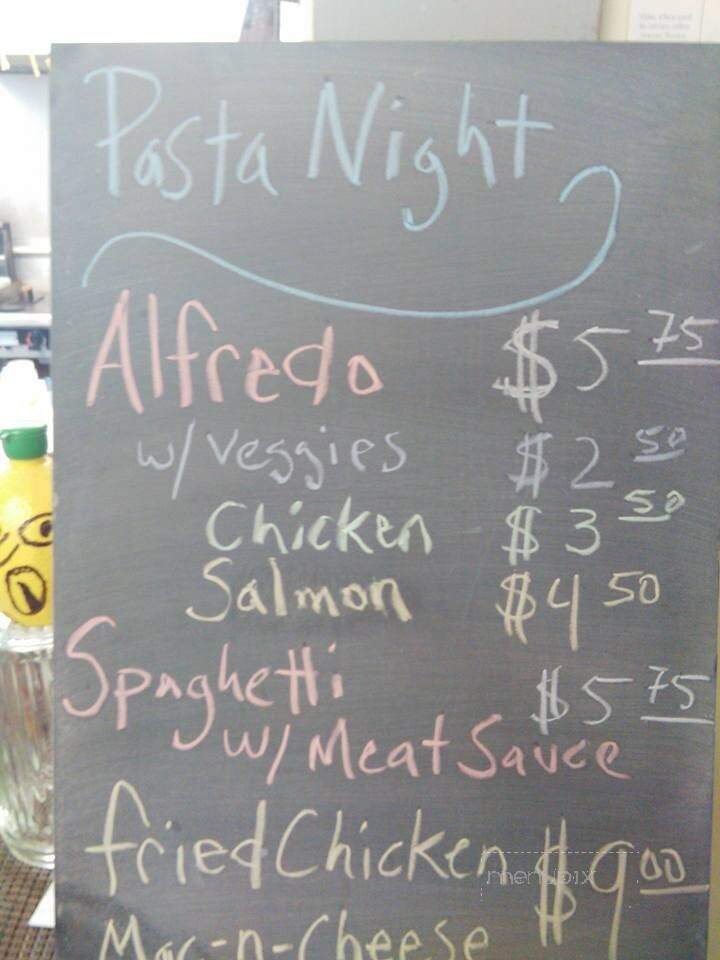 Pasta Night
Alfredo $5 75
w/ veggies $2 50
Chicken - $3 50
Salmon $4 50
Spaghetti $5 75
w/ Meat Sauce
fried Chicken $9 00
menupix
Mac-n-Cheese